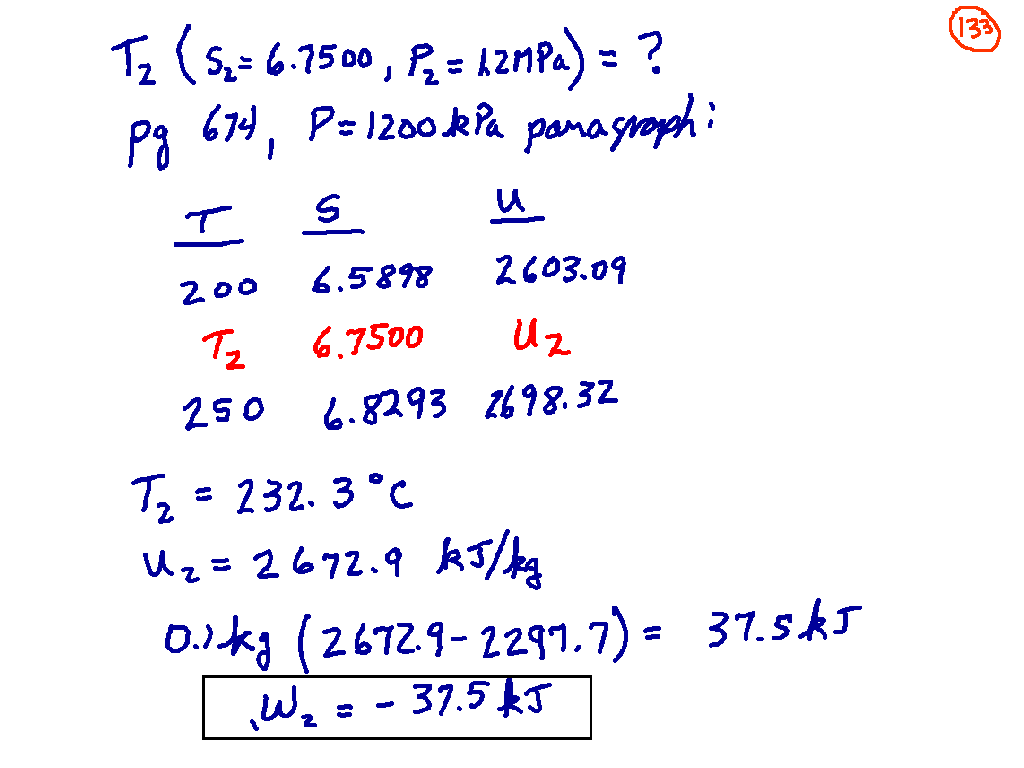 133
T₂ (S₂ = 6.7500, P₂ = 1.2 MPa) = ?
pg 674, P = 1200 kPa paragraph:
T S u
200 6.5898 2603.09
T₂ 6.7500 u₂
250 6.8293 2698.32
T₂ = 232.3 °C
u₂ = 2672.9 kJ/kg
0.1 kg (2672.9 - 2297.7) = 37.5 kJ
₁W₂ = - 37.5 kJ